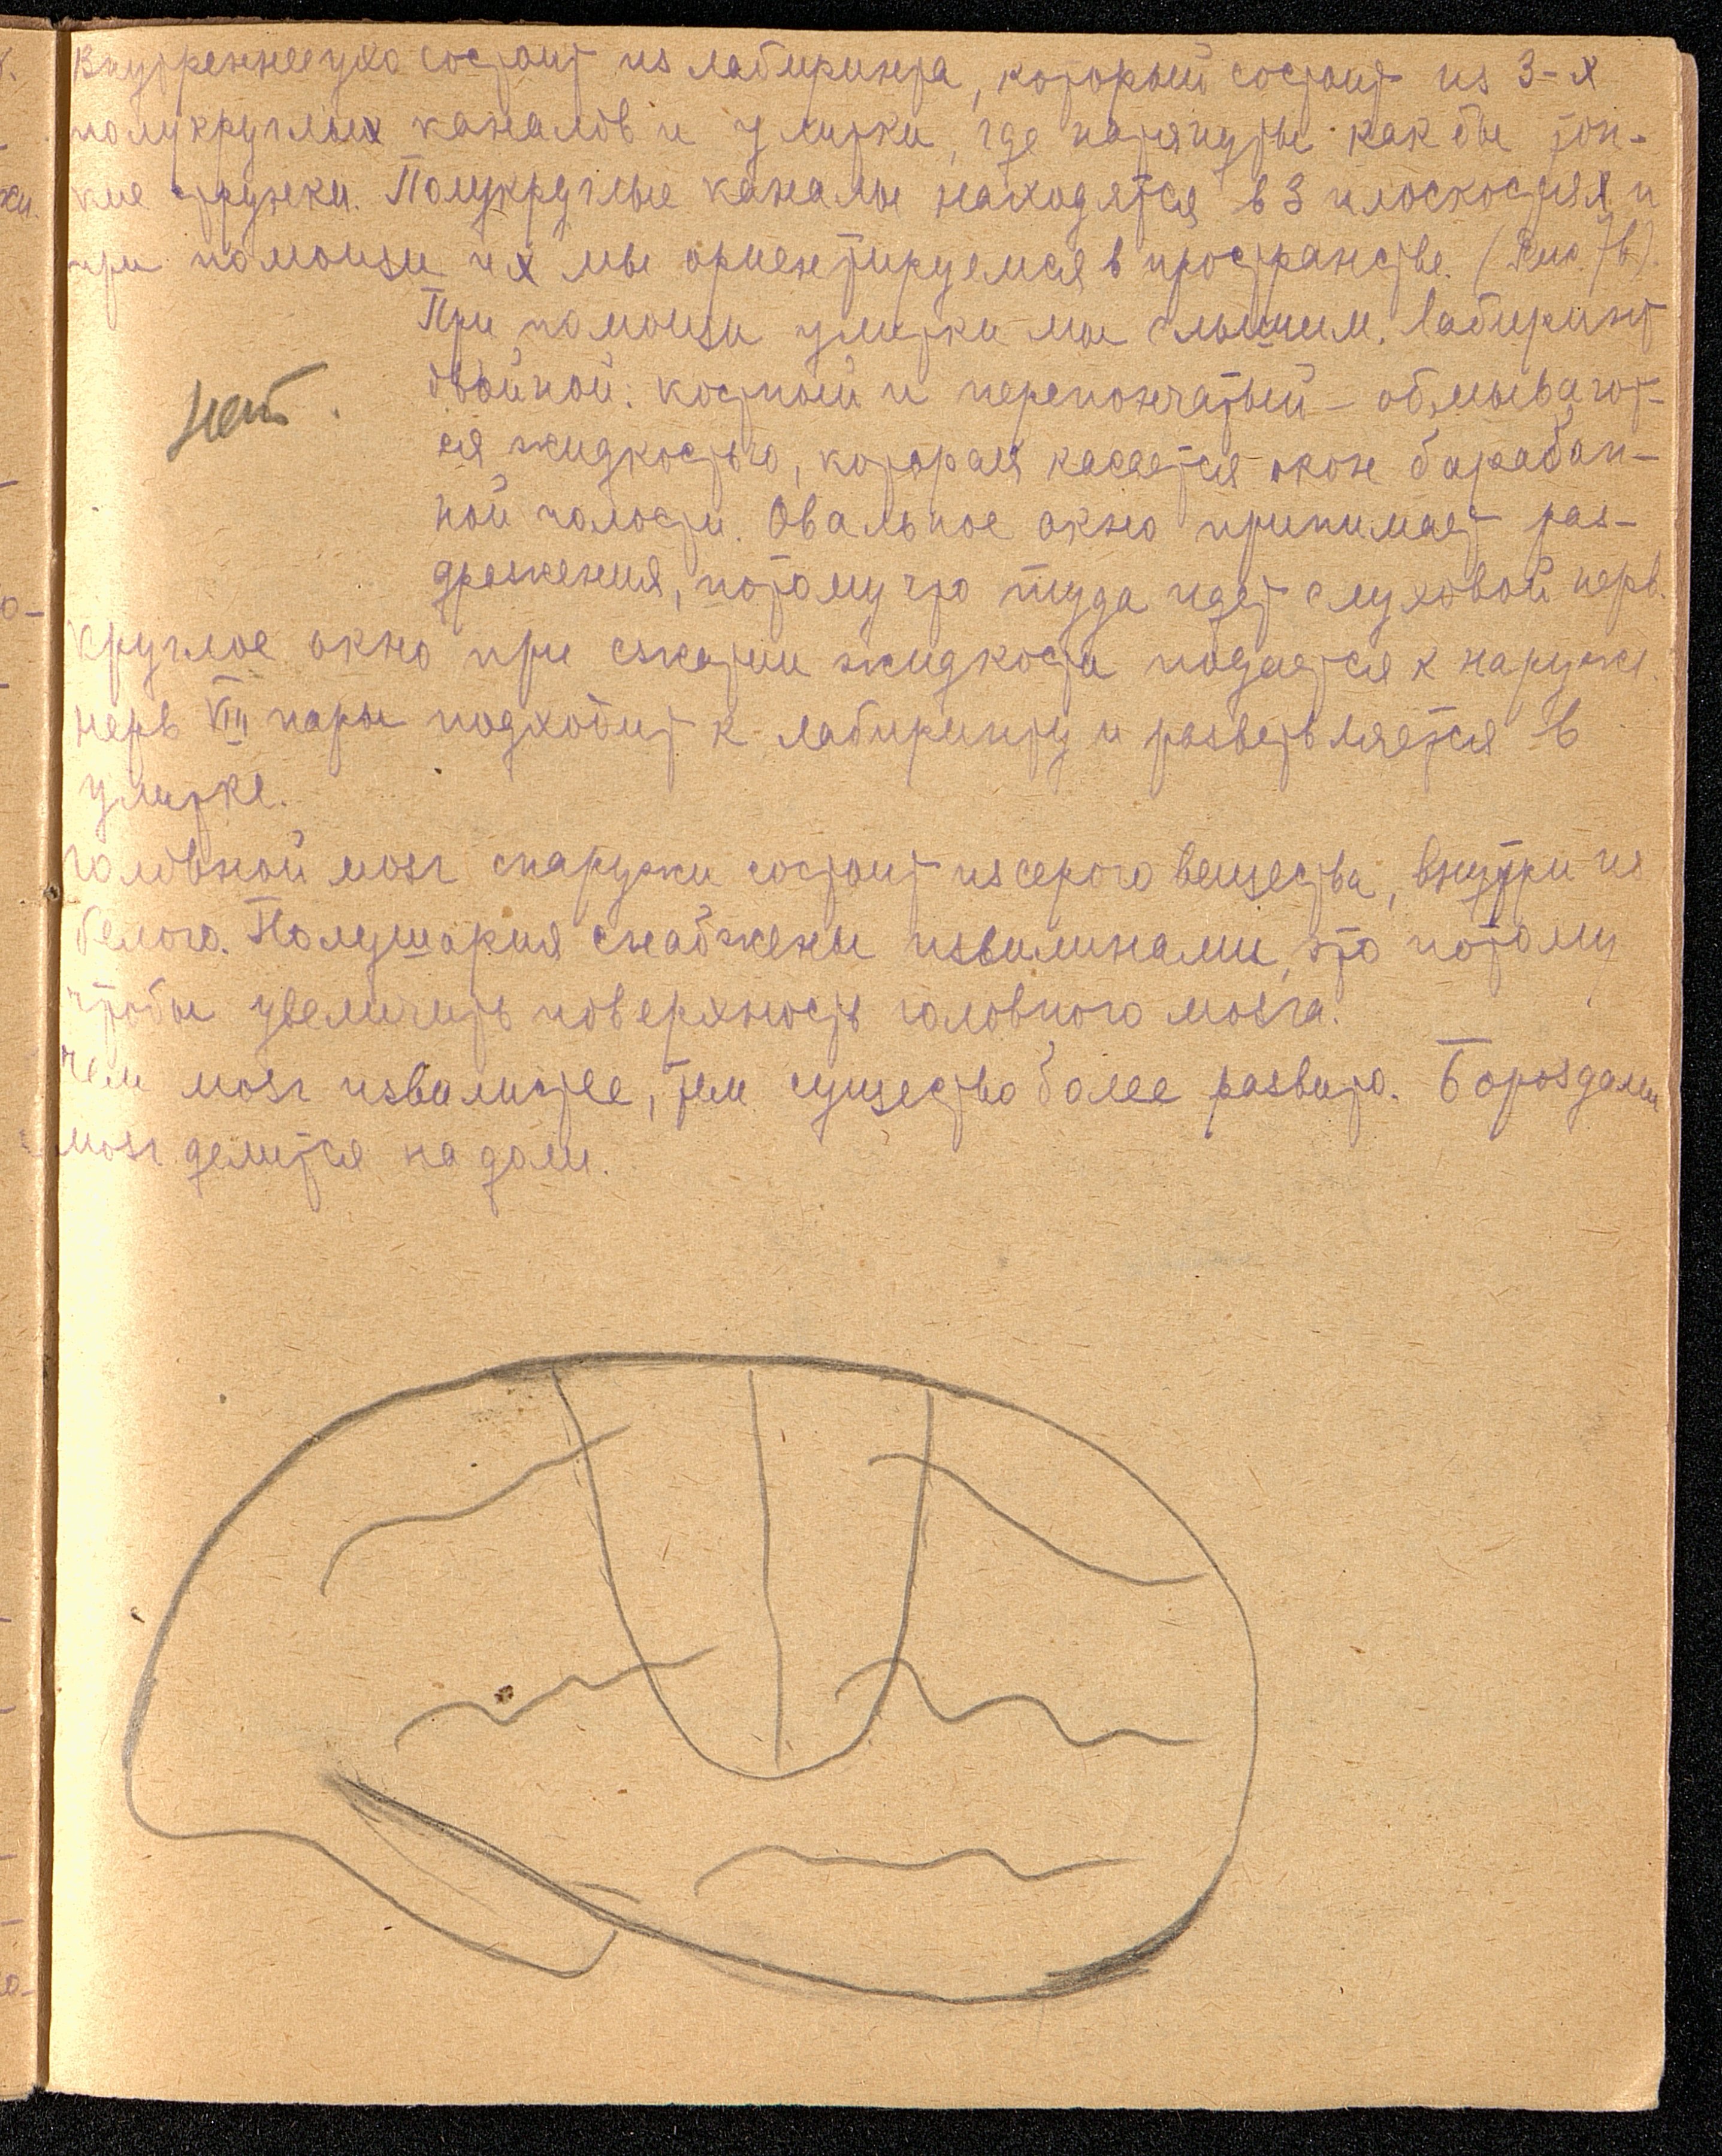 Внутреннее ухо состоит из лабиринта, который состоит из 3-х
полукруглых каналов и улитки, где натянуты как бы тон-
кие струнки. Полукруглые каналы находятся в 3 плоскостях и
при помощи их мы ориентируемся в пространстве. (Рис. 7в).
При помощи улитки мы слышим. Лабиринт
двойной: костный и перепончатый – обмывают-
ся жидкостью, которая касается окон барабан-
нет.
ной полости. Овальное окно принимает раз-
дражения, потому что туда идет слуховой нерв.
Круглое окно при сжатии жидкости подается к наружи.
Нерв VIII пары подходит к лабиринту и разветвляется в
улитке.
Головной мозг снаружи состоит из серого вещества, внутри из
белого. Полушария снабжены извилинами, это потому
чтобы увеличить поверхность головного мозга.
Чем мозг извилистее, тем существо более развито. Бороздами
мозг делится на доли.